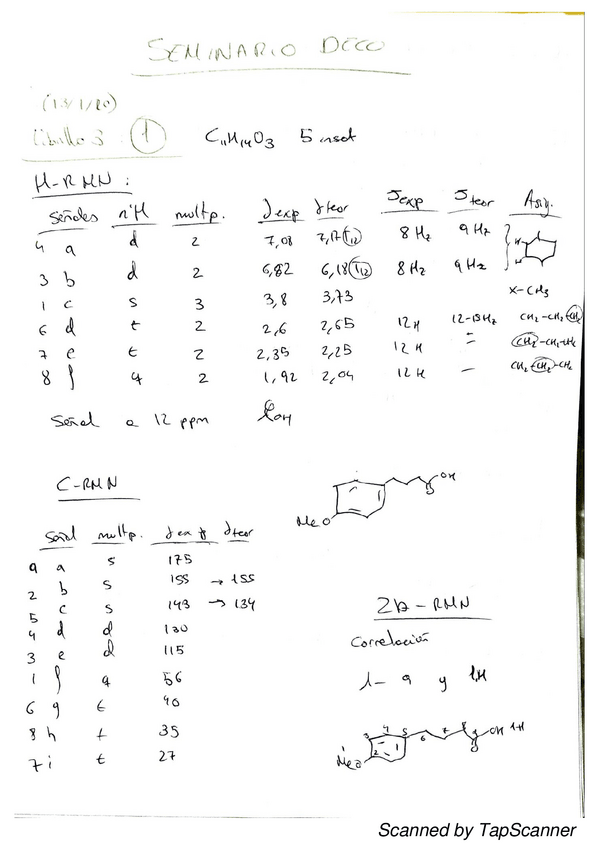 SEMINARIO DECO
Librillo 3 : 1 C11H14O3 5 insat
H-RMN :
Señales nºH multp. δexp δteor Jexp Jteor Asig.
4 a d 2 7,08 7,17 8 Hz 9 Hz
3 b d 2 6,82 6,18 8 Hz 9 Hz
1 c s 3 3,8 3,73 X-CH3
6 d t 2 2,6 2,65 12H 12-13Hz CH2-CH2-CH2
7 e t 2 2,35 2,25 12H = CH2-CH2-CH2
8 f q 2 1,92 2,04 12H - CH2-CH2-CH2
Señal a 12 ppm
C-RMN
OH
MeO
Señal multp. δexp δteor
9 a s 175
2 b s 155 → 155
5 c s 143 → 134
4 d d 130
3 e d 115
1 f q 56
6 g t 40
8 h t 35
7 i t 27
2D-RMN
Correlación
1- 9 y 1H
3 4 5 6 7 8 9 OH 1H
MeO 2 1
Scanned by TapScanner